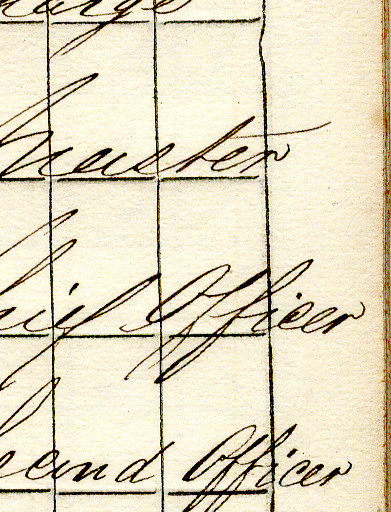 Master
hief Officer
econd Officer